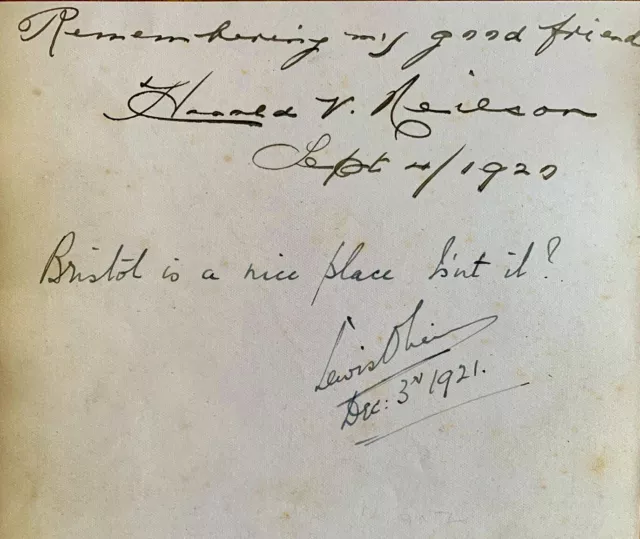 Remembering my good friend
Harold V. Neilson
Sept 4/1920
Bristol is a nice place Isn't it?
Lewis
Dec: 3rd 1921.